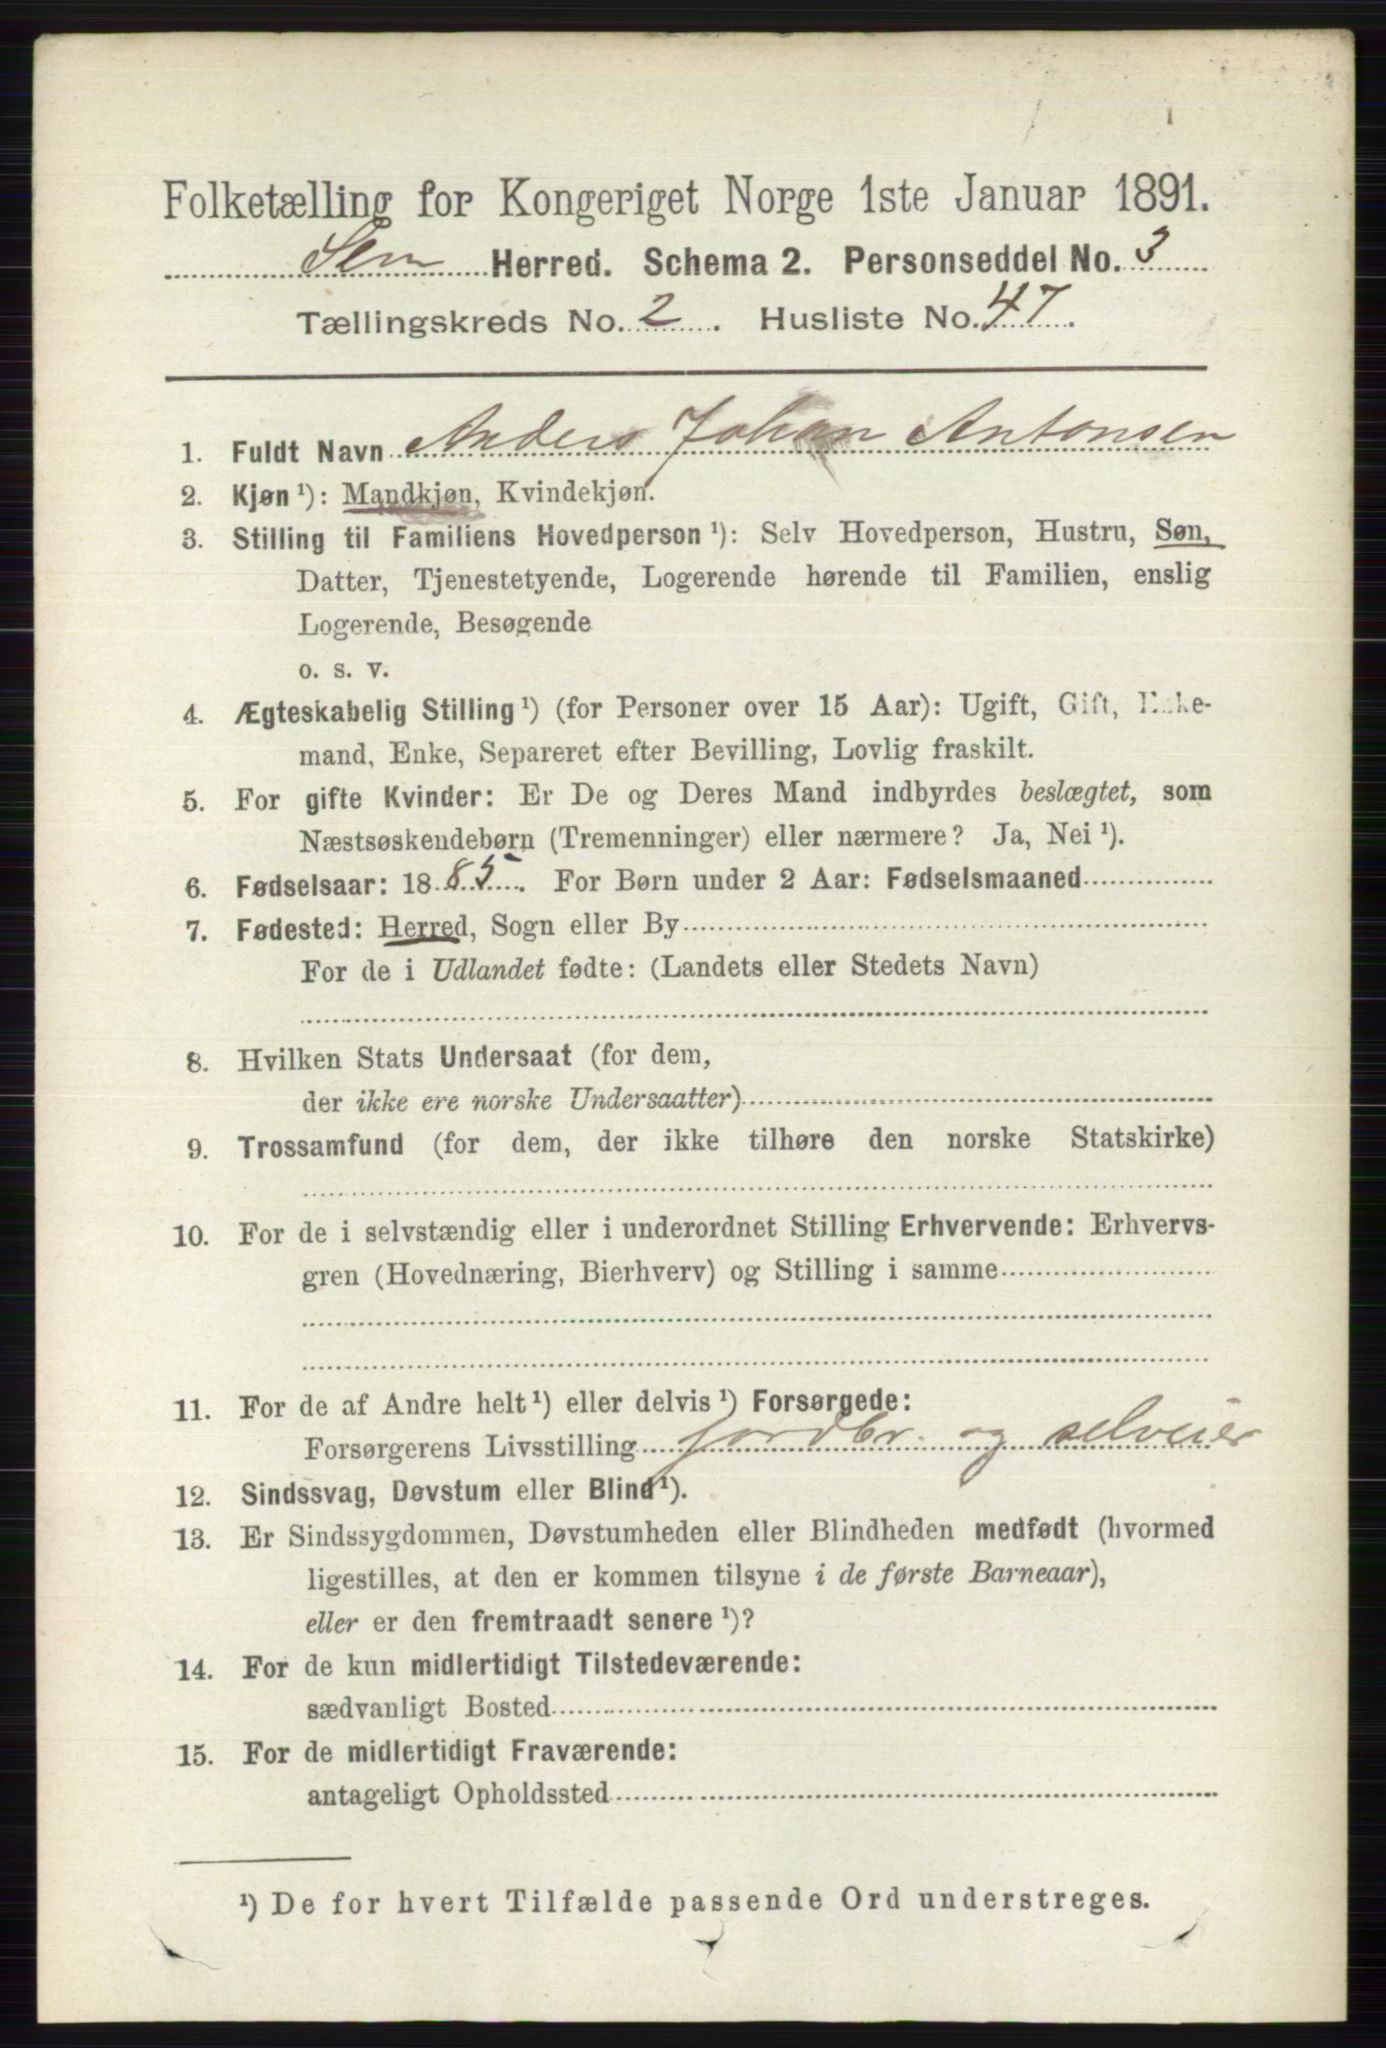 Folketælling for Kongeriget Norge 1ste Januar 1891.
Sem Herred. Schema 2. Personseddel No. 3
Tællingskreds No. 2. Husliste No. 47.
1. Fuldt Navn Anders Johan Antonsen
2. Kjøn ¹): Mandkjøn, Kvindekjøn.
3. Stilling til Familiens Hovedperson ¹): Selv Hovedperson, Hustru, Søn,
Datter, Tjenestetyende, Logerende hørende til Familien, enslig
Logerende, Besøgende
o. s. v.
4. Ægteskabelig Stilling ¹) (for Personer over 15 Aar): Ugift, Gift, Enke-
mand, Enke, Separeret efter Bevilling, Lovlig fraskilt.
5. For gifte Kvinder: Er De og Deres Mand indbyrdes beslægtet, som
Næstsøskendebørn (Tremenninger) eller nærmere? Ja, Nei ¹).
6. Fødselsaar: 1885. For Børn under 2 Aar: Fødselsmaaned
7. Fødested: Herred, Sogn eller By
For de i Udlandet fødte: (Landets eller Stedets Navn)
8. Hvilken Stats Undersaat (for dem,
der ikke ere norske Undersaatter)
9. Trossamfund (for dem, der ikke tilhøre den norske Statskirke)
10. For de i selvstændig eller i underordnet Stilling Erhvervende: Erhvervs-
gren (Hovednæring, Bierhverv) og Stilling i samme
11. For de af Andre helt ¹) eller delvis ¹) Forsørgede:
Forsørgerens Livsstilling jordbr. og selveier
12. Sindssvag, Døvstum eller Blind ¹).
13. Er Sindssygdommen, Døvstumheden eller Blindheden medfødt (hvormed
ligestilles, at den er kommen tilsyne i de første Barneaar),
eller er den fremtraadt senere ¹)?
14. For de kun midlertidigt Tilstedeværende:
sædvanligt Bosted
15. For de midlertidigt Fraværende:
antageligt Opholdssted
¹) De for hvert Tilfælde passende Ord understreges.